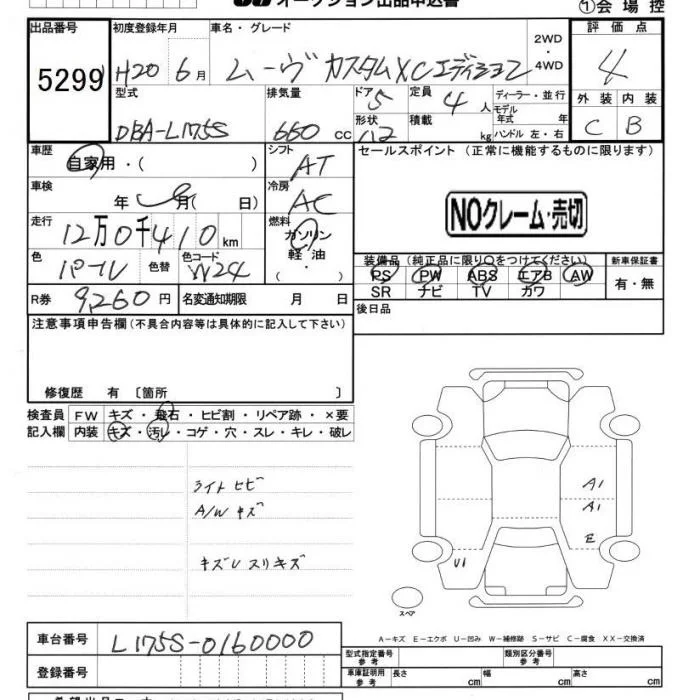 オークション出品申込書
①会場控
出品番号
5299
初度登録年月
H20 6月
車名・グレード
ムーヴ カスタムXCエディション
2WD
・
4WD
評価点
4
型式
DBA-L175S
排気量
660 cc
ドア 5
形状
定員 4 人
積載 kg
ディーラー・並行
モデル年式 年
ハンドル 左・右
外装 内装
C B
車歴
自家用・( )
シフト
AT
セールスポイント (正常に機能するものに限ります)
NOクレーム・売切
車検
年 月( 日)
冷房
AC
走行
12万0千410km
燃料
ガソリン
軽油
( )
色
パール
色替
色コード
W24
装備品 (純正品に限り○をつけてください)
PS PW ABS エアB AW
SR ナビ TV カワ
新車保証書
有・無
R券 9,260円
名変通知期限 月 日
後日品
注意事項申告欄(不具合内容等は具体的に記入して下さい)
修復歴 有 〔箇所 〕
検査員記入欄
FW キズ・飛石・ヒビ割・リペア跡・×要
内装 キズ・汚レ・コゲ・穴・スレ・キレ・破レ
ライトヒビ
A/W キズ
キズレ スリキズ
A1
A1
E
U1
スペア
A-キズ E-エクボ U-凹み W-補修跡 S-サビ C-腐食 XX-交換済
車台番号
L175S-0160000
登録番号
型式指定番号
参考
類別区分番号
参考
車庫証明用
参考
長さ cm
幅 cm
高さ cm